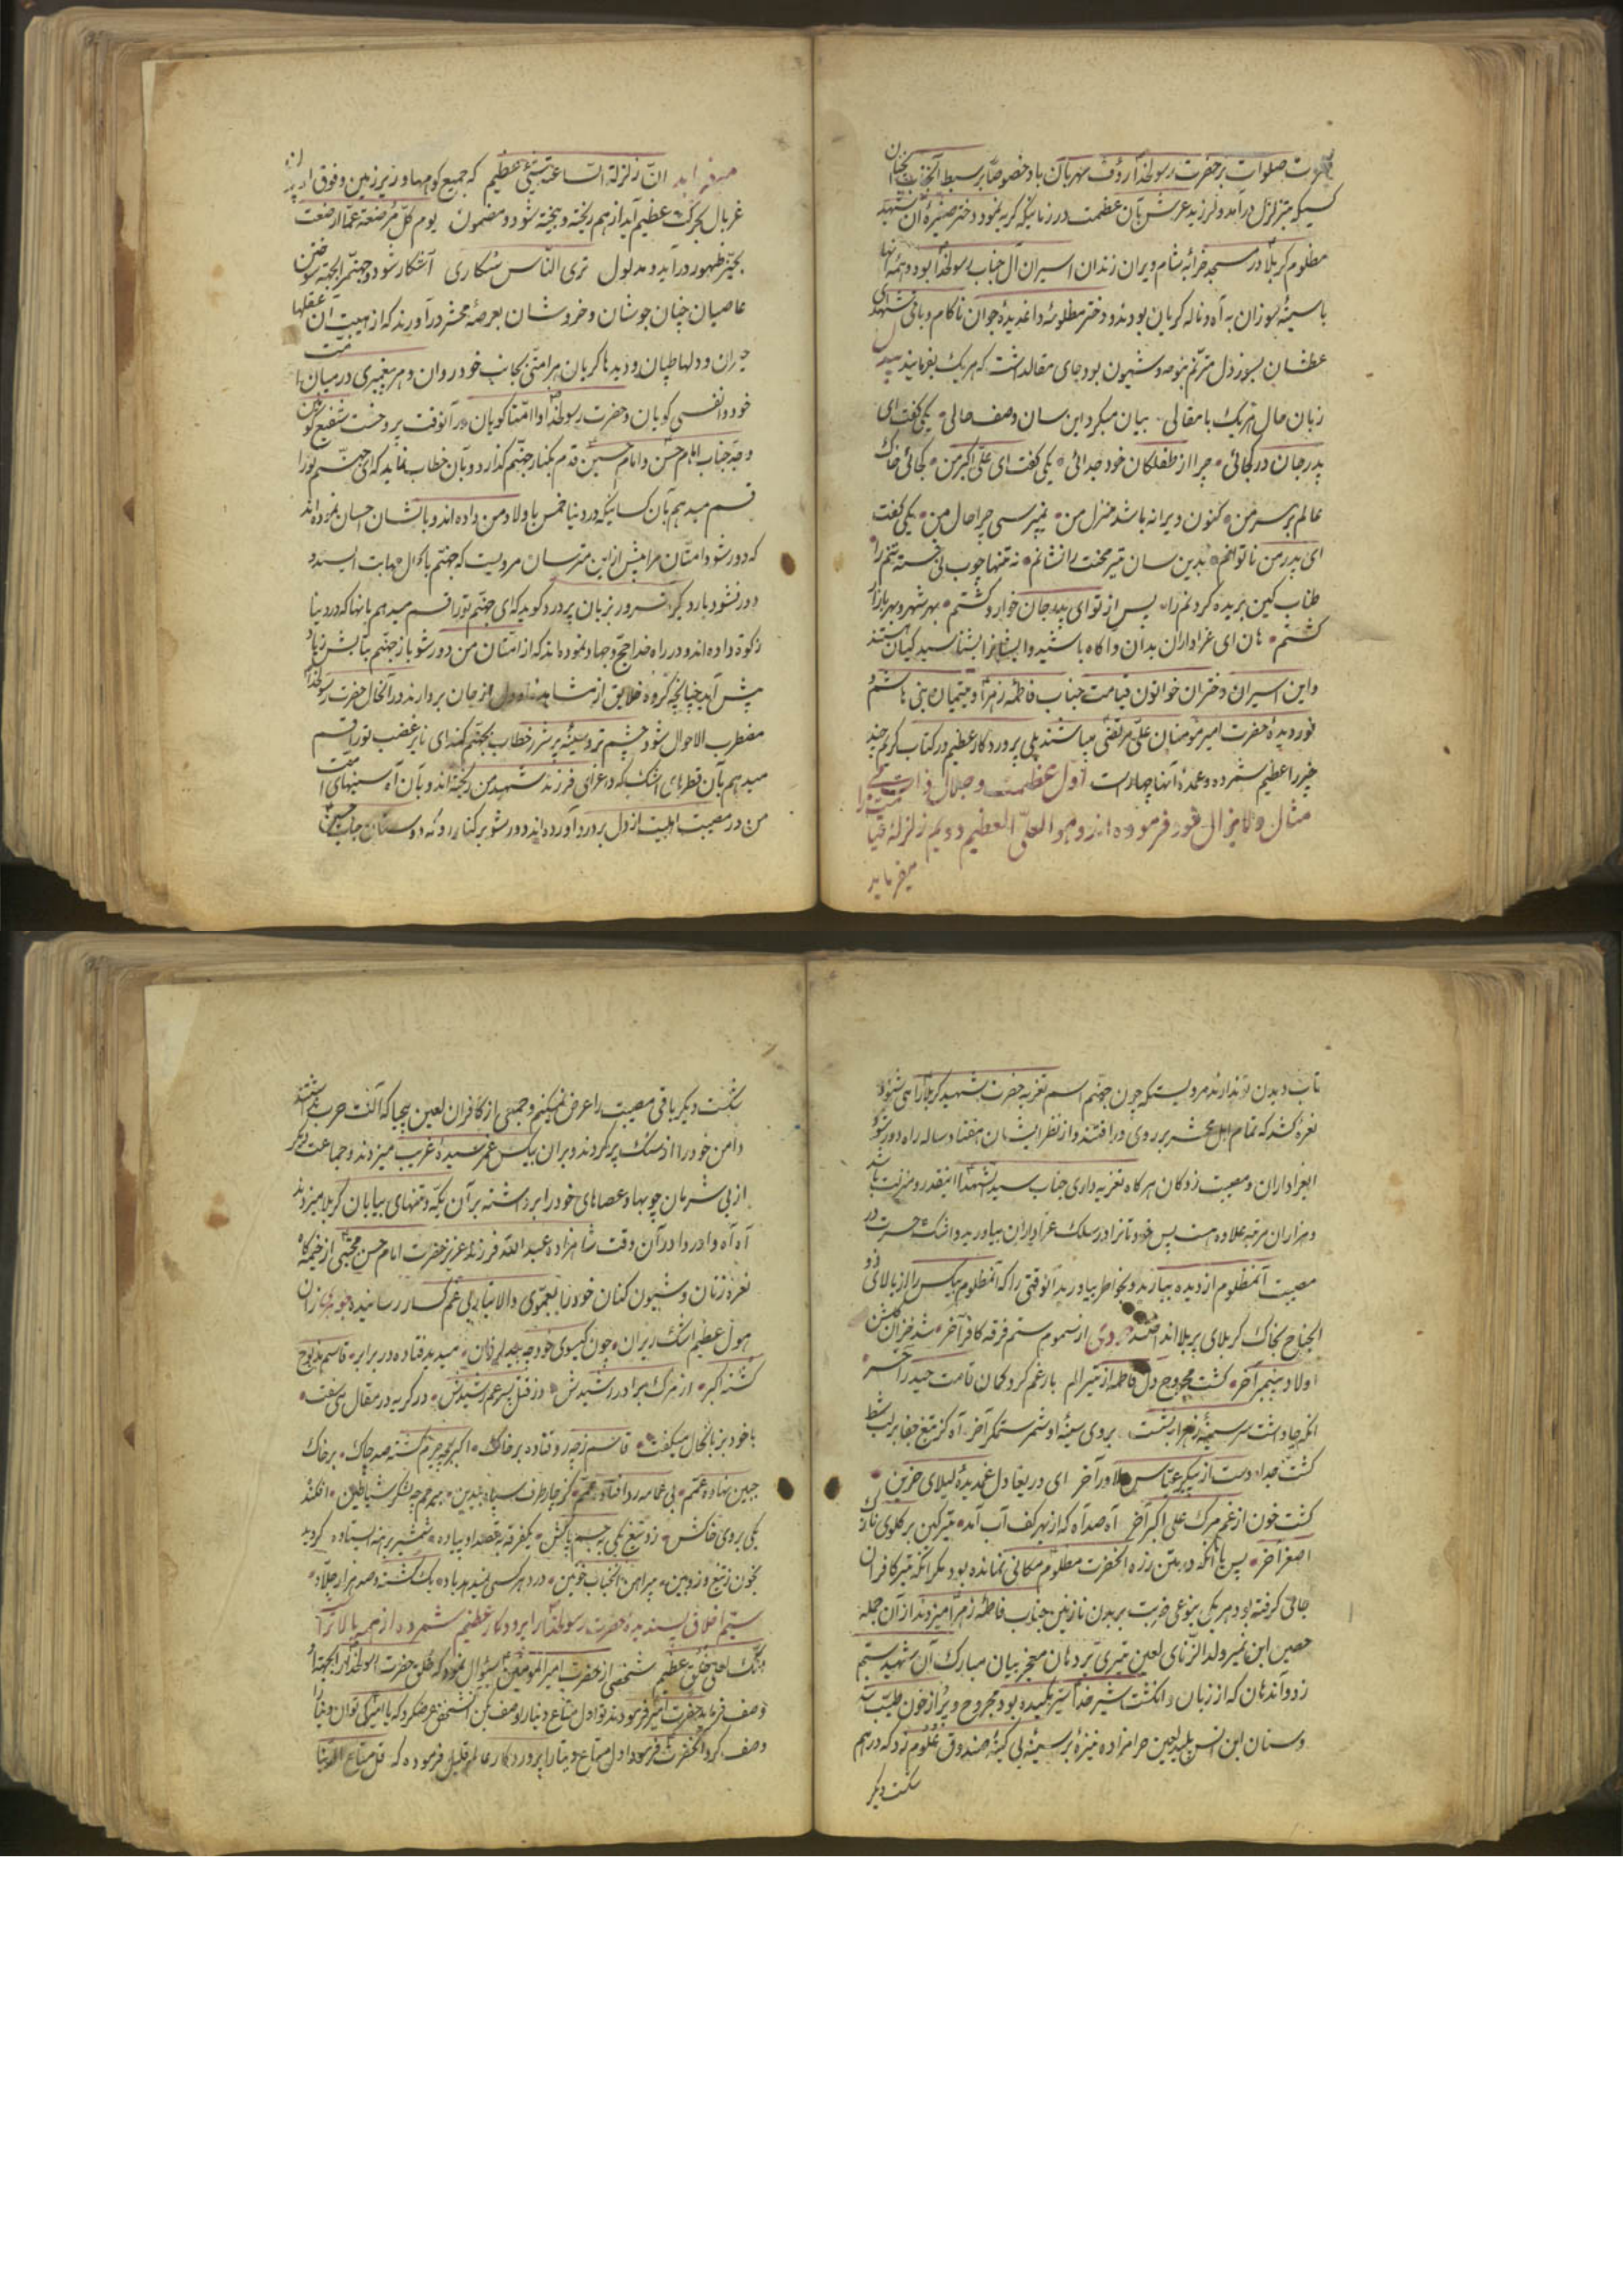 صلوات بر حضرت رسولخدا رؤف مهربان باد خصوصاً بر سبط آنجناب
کسیکه بتزلزل درآمد و لرزید عرش بآن عظمت در زمانیکه کریه نمود دختر صغیرهٔ آن شهید
مظلوم کربلا در مسجد خرابهٔ شام ویران زندان اسیران آل جناب رسولخدا بود و همهٔ آنها
با سینهٔ سوزان به آه و ناله کریان بودند و دختر مظلومهٔ داغدیدهٔ جوان ناکام و باقی شهدای
عطشان بسوز دل مترنم بنوحه و شیون بود جای مقالست که هر یک بفرمایید
زبان حال هر یک با مقالی بیان میکرد این سان وصف حالی یکی گفت ای
پدر جان در کجائی چرا از طفلکان خود جدائی یکی گفت ای علی اکبر من کجائی خاک
عالم بر سر من کنون ویرانه باشد منزل من نمیپرسی چرا حال من یکی گفت
ای پدر من ناتوانم بدین سان تیر محنت را نشانم نه تنها چوب نی خسته تنم را
طناب کین بریده گردنم را پس از تو ای پدر جان خوار و گشتم بهر شهر و بهر بازار
گشتم هان ای عزاداران بدان و آگاه باشید و ایشانرا بشناسید کیان هستند
و این اسیران دختران خواتون قیامت جناب فاطمه زهرا و یتیمان بنی هاشم و
نوردیدهٔ حضرت امیرمؤمنان علی مرتضی میباشند بلی پروردکار عظیم در کتاب کریم چند
چیز را عظیم شمرده و عمدهٔ آنها چهار است اول عظمت و جلال ذات بی
مثال و لایزال خود فرموده اند و هو العلی العظیم دویم زلزلهٔ قیامت را
میفرماید
میفرماید ان زلزلة الساعة شیئ عظیم که جمیع کوهها و زیر زمین و فوق
غربال بحرکت عظیم آید از هم ریخته و بیخته شود و مضمون یوم کل مرضعة عما ارضعت
بحیز ظهور درآید و مدلول تری الناس سکاری آشکار شود و جهنم را بجهة سوختن
عاصیان چنان جوشان و خروشان بعرصهٔ محشر درآورند که از هیبت آن عقلها
حیران و دلها طپان و دیدها کریان هر امتی بجانب خود روان و هر پیغمبری در میان امت
خود وانفسی کویان و حضرت رسولخدا وا امتا کویان در آنوقت پر وحشت شفیع
جناب امام حسن و امام حسین قدم بکنار جهنم گذارد و بآن خطاب نماید که ای جهنم تورا
قسم میدهم بآن کسانیکه در دنیا خمس باولاد من داده اند و بایشان احسان نموده اند
که دور شو و امتان مرا بیش از این مترسان مرویست که جهنم بآن
دور نشود بار دیگر آن سرور بزبان پر درد گوید که ای جهنم تورا قسم میدهم بآنها که در دنیا
زکوة داده اند و در راه خدا حج و جهاد نموده اند که از امتان من دور شو باز جهنم
پیش آید چنانچه گروه خلایق از مشاهده او دل از جان بردارند در آنحال حضرت رسولخدا
مضطرب الاحوال شود چشم تر و سینهٔ پر شرر خطاب بجهنم کند ای نایر غضب تورا قسم
میدهم بآن قطرهای اشک که در عزای فرزند شهید من ریخته اند و بآن آه سینهای امت
من در مصیبت اهلبیت از دل پر درد آورده اند دور شو بر کنار دوستان جناب حسین
تاب دیدن تو ندارند مرویستکه چون جهنم اسم تعزیهٔ حضرت شهید کربلا را می شنود
نعره کشد که تمام اهل محشر بر روی درافتند و از نظر ایشان هفتاد ساله راه دور شود
ایعزاداران و مصیبت زدکان هرگاه تعزیه داری جناب سید شهدا اینقدر و منزلت باشد
و هزاران مرتبه علاوه است پس خود تانرا در سلک عزاداران بیاورید و اشک حسرت در
مصیبت آنمظلوم از دیده ببارید و بخاطر بیاورید آنوقتی را که آنمظلوم بیکس را از بالای ذو
الجناح بخاک کربلای پر بلا انداختند از سموم ستم فرقه کافر آخر شد خزان گلشن
اولاد پیمبر آخر گشت مجروح دل فاطمه از تیر الم بار غم کرد کمان قامت حیدر آخر
آنکه جا داشت سر سینهٔ زهرا بنشست بر وی سینهٔ او شمر ستمگر آخر آه کز تیغ جفا بر لب شط
گشت جدا دست از پیکر عباس دلاور آخر ای دریغا دل غمدیدهٔ لیلای حزین
گشت خون از غم مرگ علی اکبر آخر آه صد آه که از بهر کف آب آمد تیر کین بر گلوی نازک
اصغر آخر پس با آنکه در بدن زره آنحضرت مظلوم مکانی نمانده بود مگر آنکه تیر کافران
جای گرفته بود و هر یکی بنوعی ضربت بر بدن نازنین جناب فاطمه زهرا میزدند از آن جمله
حصین ابن نمیر ولد الزنای لعین تیری بر دهان معجز بیان مبارک آن شهید ستم
زد و آندهان که از زبان و انگشت شیر خدا شیر مکیده بود مجروح و پر از خون طیب شد
و سنان ابن انس پلید لعین حرامزاده نیزه بر سینهٔ بی کینهٔ صندوق علوم زد که درهم
شکست دیگر
شکست دیگر باقی مصیبت را عرض نمیکنم و جمعی از کافران لعین بیحیا که آلت حرب نداشتند
دامن خود را از سنگ پر کردند و بر آن بیکس غمرسیدهٔ غریب میزدند و جماعت دیگر
از بی شرمان چوبها و عصاهای خود را برداشته بر آن یکه و تنهای بیابان کربلا میزدند
آه آه وادردا در آن وقت شاهزاده عبد الله فرزند عزیز حضرت امام حسن مجتبی از خیمگاه
نعره زنان و شیون کنان خود را بعموی والاتبار بی غمگسار رسانیده
هول عظیم اشک ریزان چون گیسوی خود میدید فتاده در برابر قاسم مذبوح
کشته اکبر از مرگ برادر رشیدش وز قتل پسر عم شهیدش در گریه در مقال می سفت
با خود بزبانحال میگفت قاسم ز چه رو فتاده بر خاک اکبر بچه جرم گشته صد چاک بر خاک
جبین نهاده عمم بی عمامه ردا فتاده عمم کز چار طرف سپاه بیدین بیرحم چه لشکر شیاطین افکند
یکی بروی خاکش زد تیغ یکی بجسم پاکش یکفرقه بقصد او پیاده شمشیر برهنه ایستاده گردید
بخون ز تیغ و زوبین پیراهن آنجناب خونین درد هر کسی ندیده یاد یک کشته و صد هزار جلاد
سیم اخلاق پسندیدهٔ حضرت رسولخدا را پروردکار عظیم شمرده از همه بالاتر
انک لعلی خلق عظیم شخصی از حضرت امیرالمؤمنین سؤال نمود که خلق حضرت رسولخدا را بجهة او
وصف فرماید حضرت امیر فرمودند تو اول متاع دنیا را وصف کن آنشخص عرضکرد که یا امیر کی توان دنیا را
وصف کرد آنحضرت فرمود اول متاع دنیا را پروردکار عالم قلیل فرموده که قل متاع الدنیا